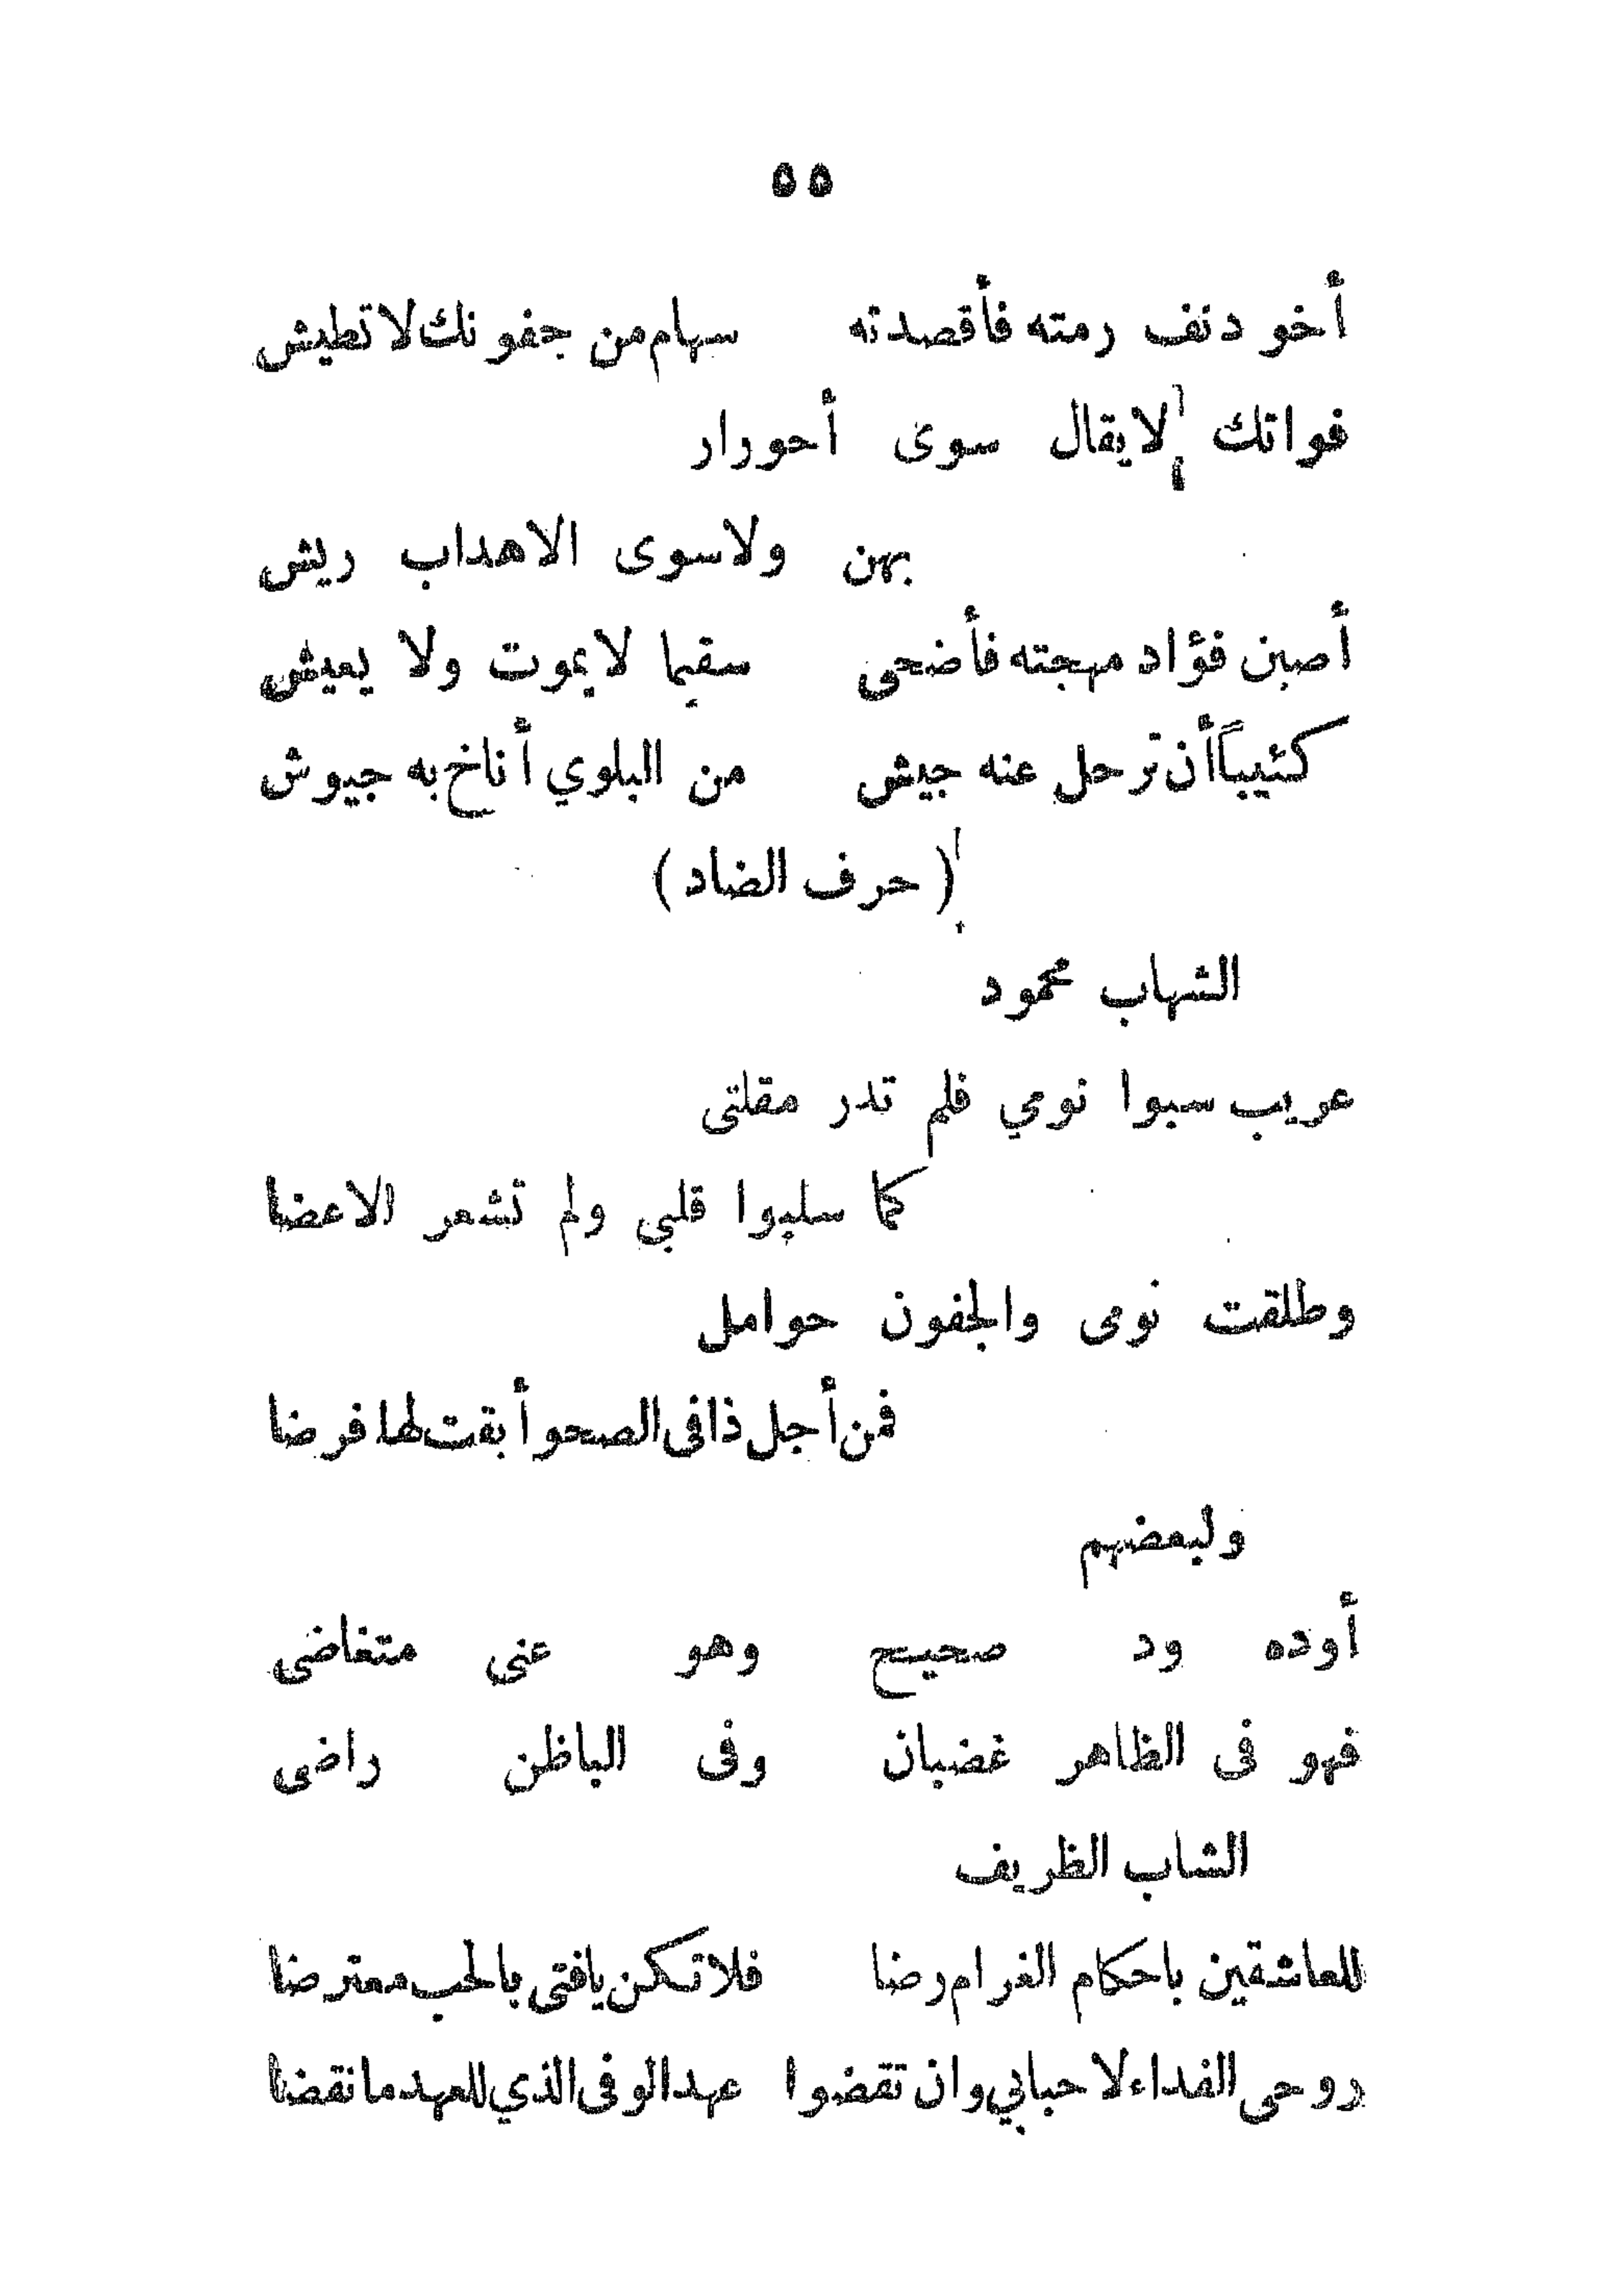 ٥٥
أخو دنف رمته فأقصدته سهام من جفونك لا تطيش
فواتك لا يقال سوى أحورار
بهن ولا سوى الاهداب ريش
أصبن فؤاد مهجته فأضحى سقيما لا يموت ولا يعيش
كئيباً أن ترحل عنه جيش من البلوي أناخ به جيوش
( حرف الضاد )
الشهاب محمود
عريب سبوا نومي فلم تدر مقلتى
كما سلبوا قلبي ولم تشعر الاعضا
وطلقت نومى والجفون حوامل
فمن أجل ذا فى الصحو أبقت لها فرضا
ولبعضهم
أوده ود صحيح وهو عنى متغاضى
فهو فى الظاهر غضبان وفى الباظن راضى
الشاب الظريف
للعاشقين باحكام الغرام رضا فلا تكن يا فتى بالحب معترضا
روحى الفداء لاحبابي وان نقضوا عهد الوفى الذي للعهد ما نقضا